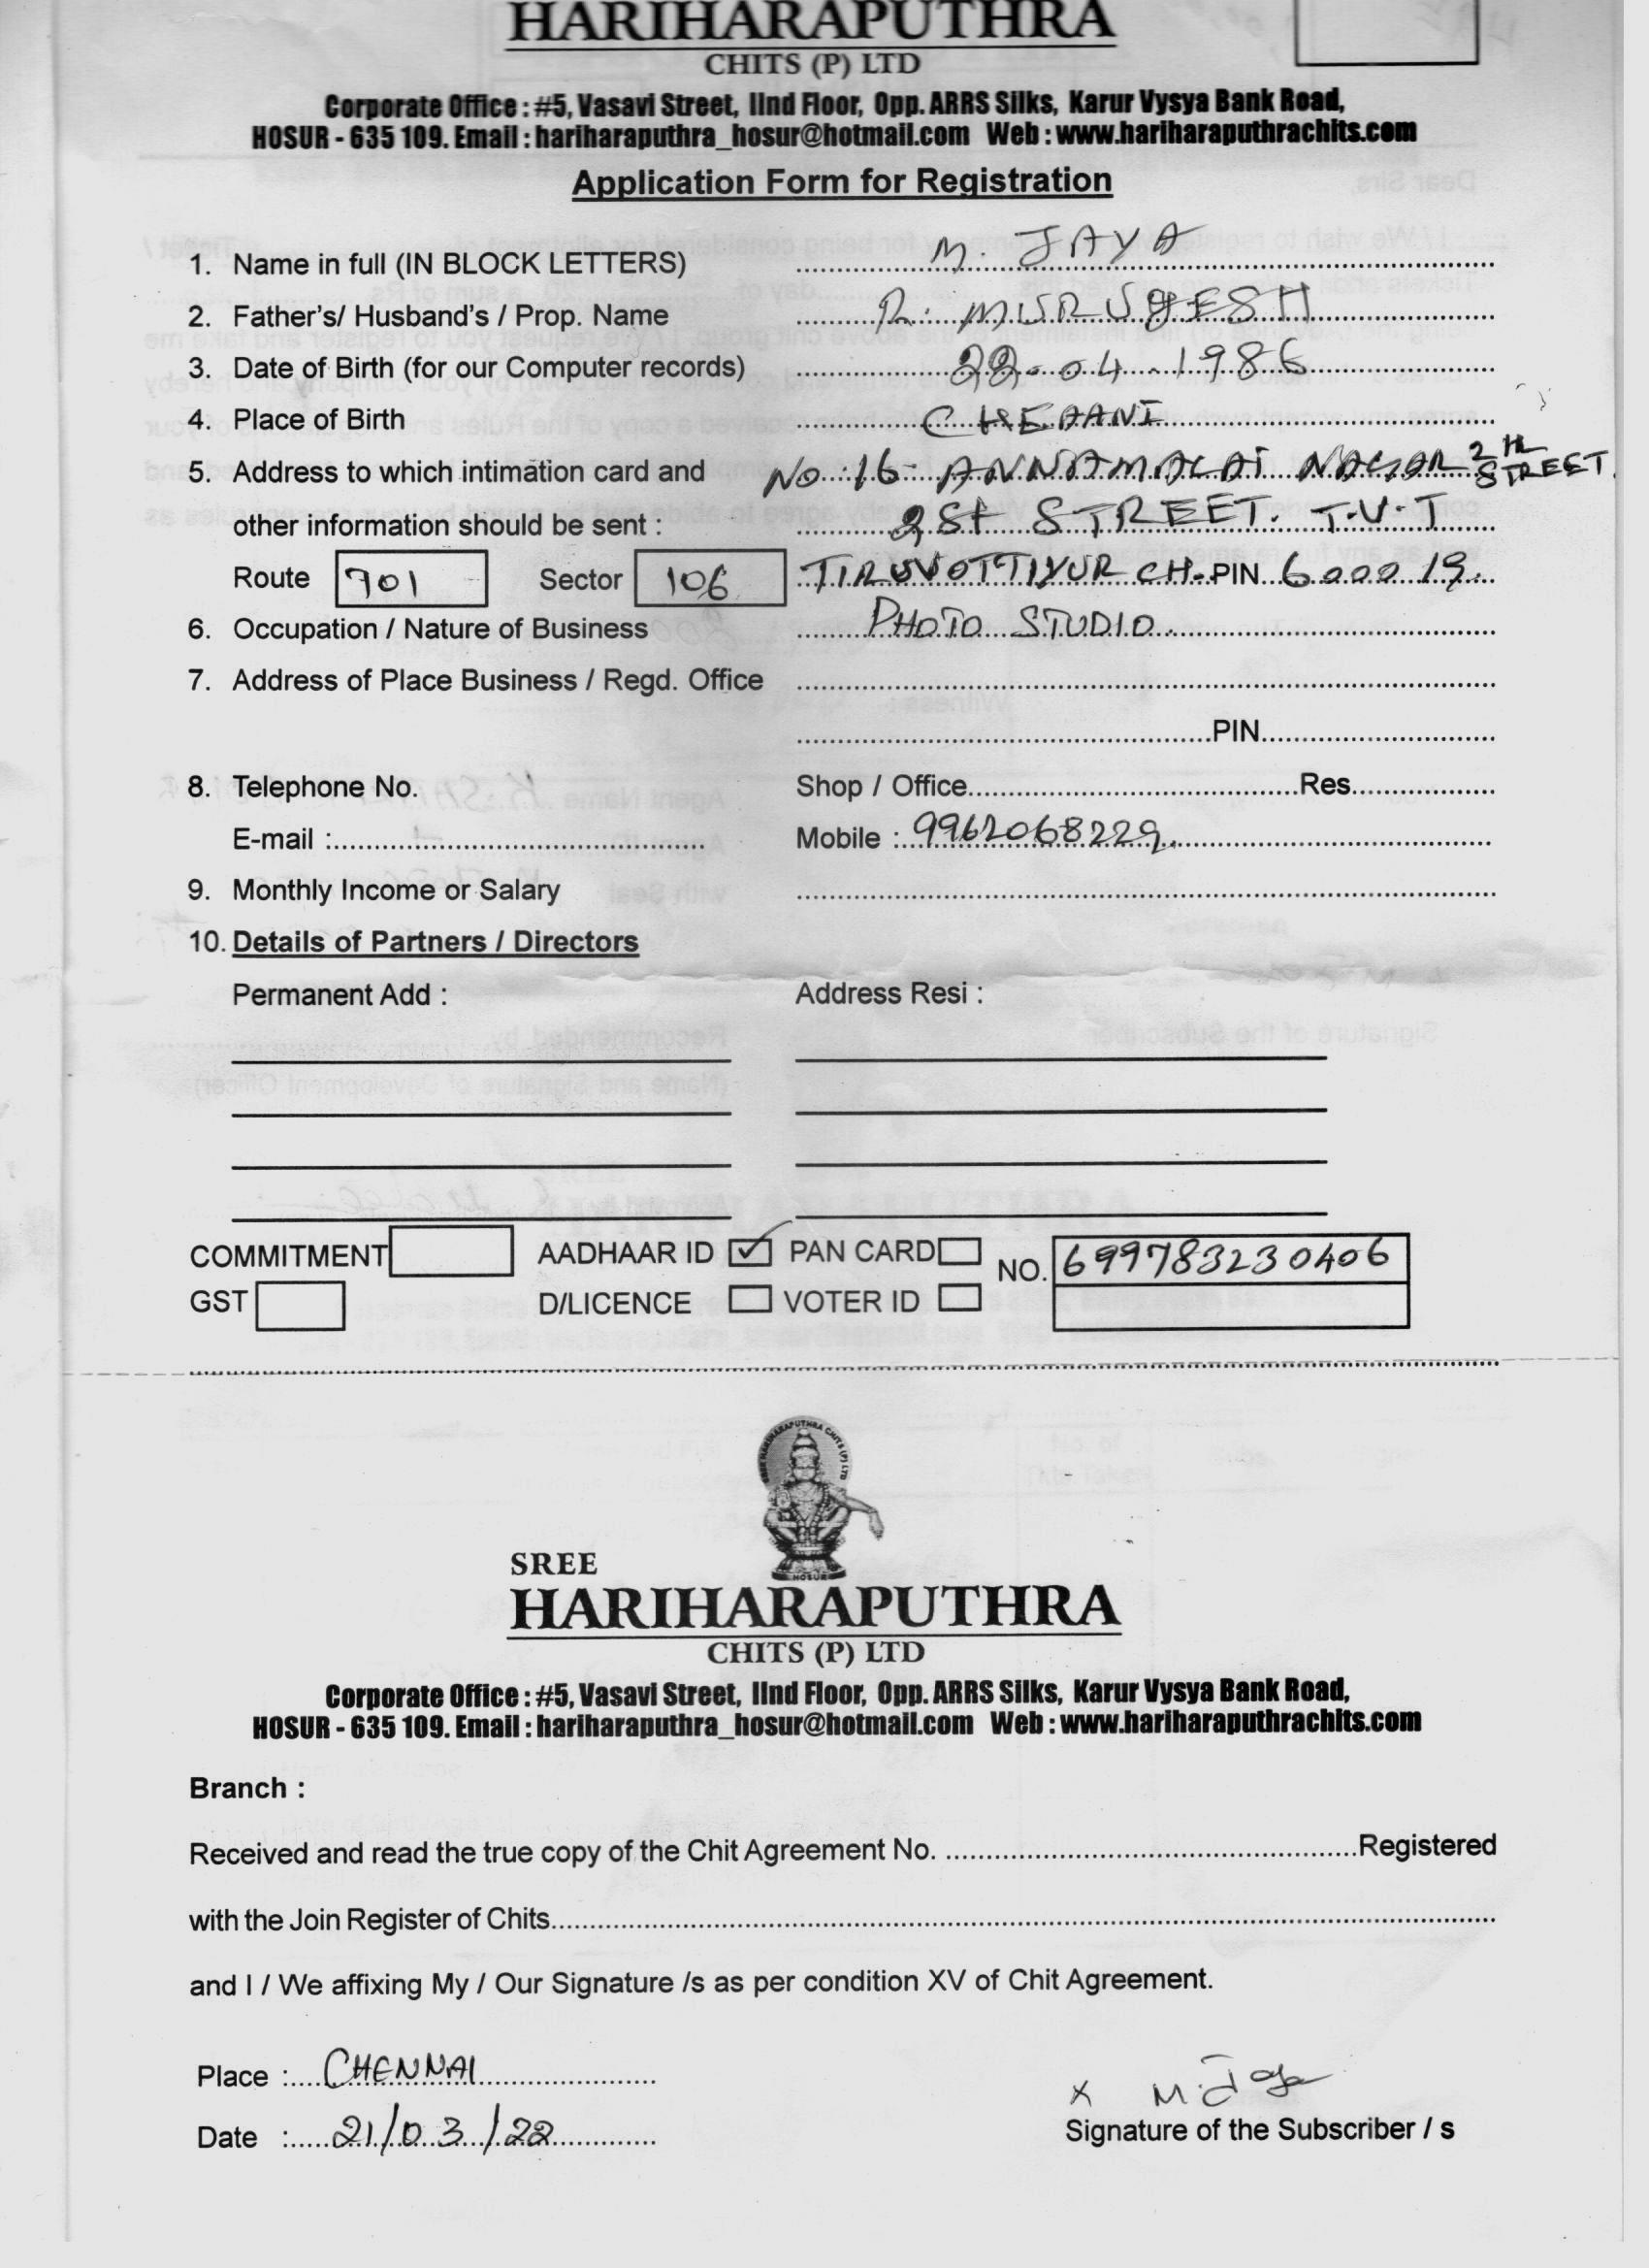 HARIHARAPUTHRA
CHITS (P) LTD
Corporate Office : #5, Vasavi Street, IInd Floor, Opp. ARRS Silks, Karur Vysya Bank Road,
HOSUR - 635 109. Email : hariharaputhra_hosur@hotmail.com Web : www.hariharaputhrachits.com
Application Form for Registration
1. Name in full (IN BLOCK LETTERS) M. JAYA
2. Father's/ Husband's / Prop. Name R. MURUGESH
3. Date of Birth (for our Computer records) 22-04-1986
4. Place of Birth
5. Address to which intimation card and No:16- ANNAMALAI NAGAR 2th STREET
other information should be sent : 2St STREET. T.V.T
Route 701 Sector 106 TIRUVOTTIYUR CH- PIN 600019.
6. Occupation / Nature of Business PHOTO STUDIO
7. Address of Place Business / Regd. Office
PIN
8. Telephone No. Shop / Office Res
E-mail : Mobile : 9962068229
9. Monthly Income or Salary
10. Details of Partners / Directors
Permanent Add : Address Resi :
COMMITMENT AADHAAR ID ✓ PAN CARD NO. 699783230406
GST D/LICENCE VOTER ID
SREE HARIHARAPUTHRA CHITS (P) LTD
HOSUR
SREE
HARIHARAPUTHRA
CHITS (P) LTD
Corporate Office : #5, Vasavi Street, IInd Floor, Opp. ARRS Silks, Karur Vysya Bank Road,
HOSUR - 635 109. Email : hariharaputhra_hosur@hotmail.com Web : www.hariharaputhrachits.com
Branch :
Received and read the true copy of the Chit Agreement No. Registered
with the Join Register of Chits
and I / We affixing My / Our Signature /s as per condition XV of Chit Agreement.
Place : CHENNAI
Date : 21/03/22
x M. Jaya
Signature of the Subscriber / s